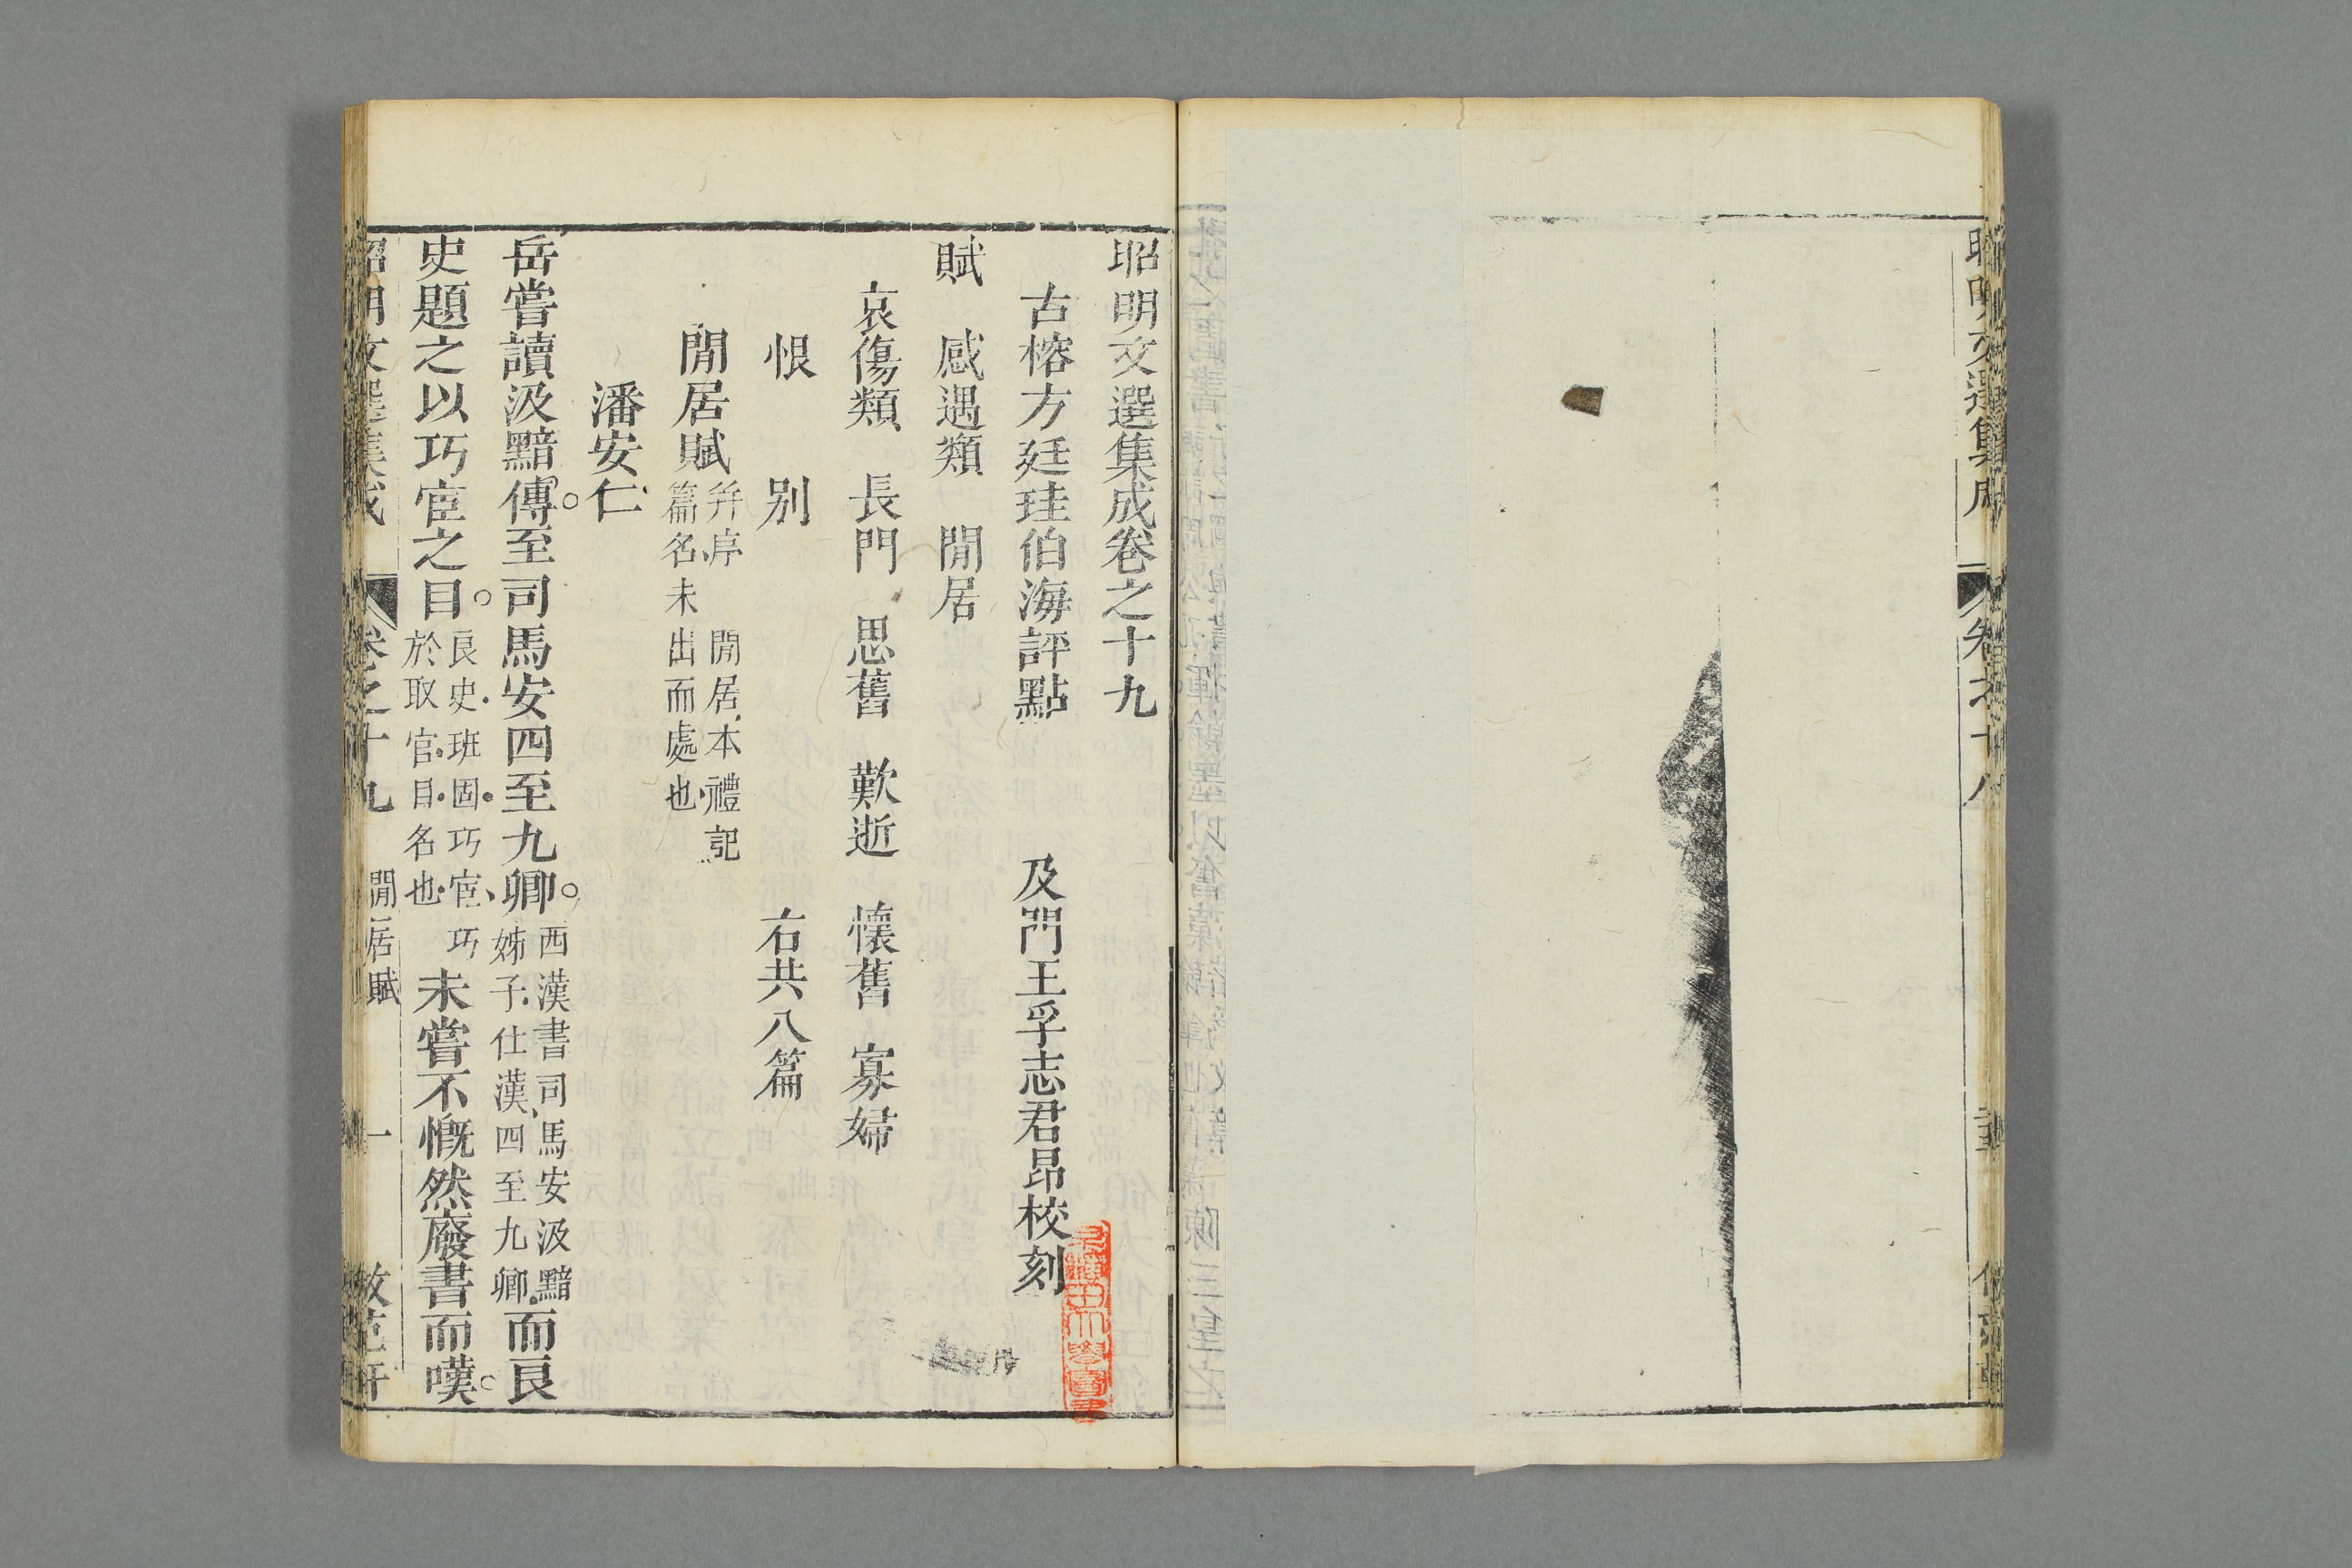 昭明文選集成卷之十九
古榕方廷珪伯海評點　及門王孚志君昂校刻
賦　感遇類　閒居
哀傷類　長門　思舊　歎逝　懷舊　寡婦
恨　別　右共八篇
閒居賦 并序　閒居本禮記
篇名未出而處也
潘安仁
岳嘗讀汲黯傳○至司馬安四至九卿○ 西漢書司馬安汲黯
姊子仕漢四至九卿 而良
史題之以巧宦之目○ 良史班固巧宦巧
於取官目名也 未嘗不慨然廢書而嘆○
昭明文選集成　卷之十九　閒居賦　一
昭明文選集成　卷之十八